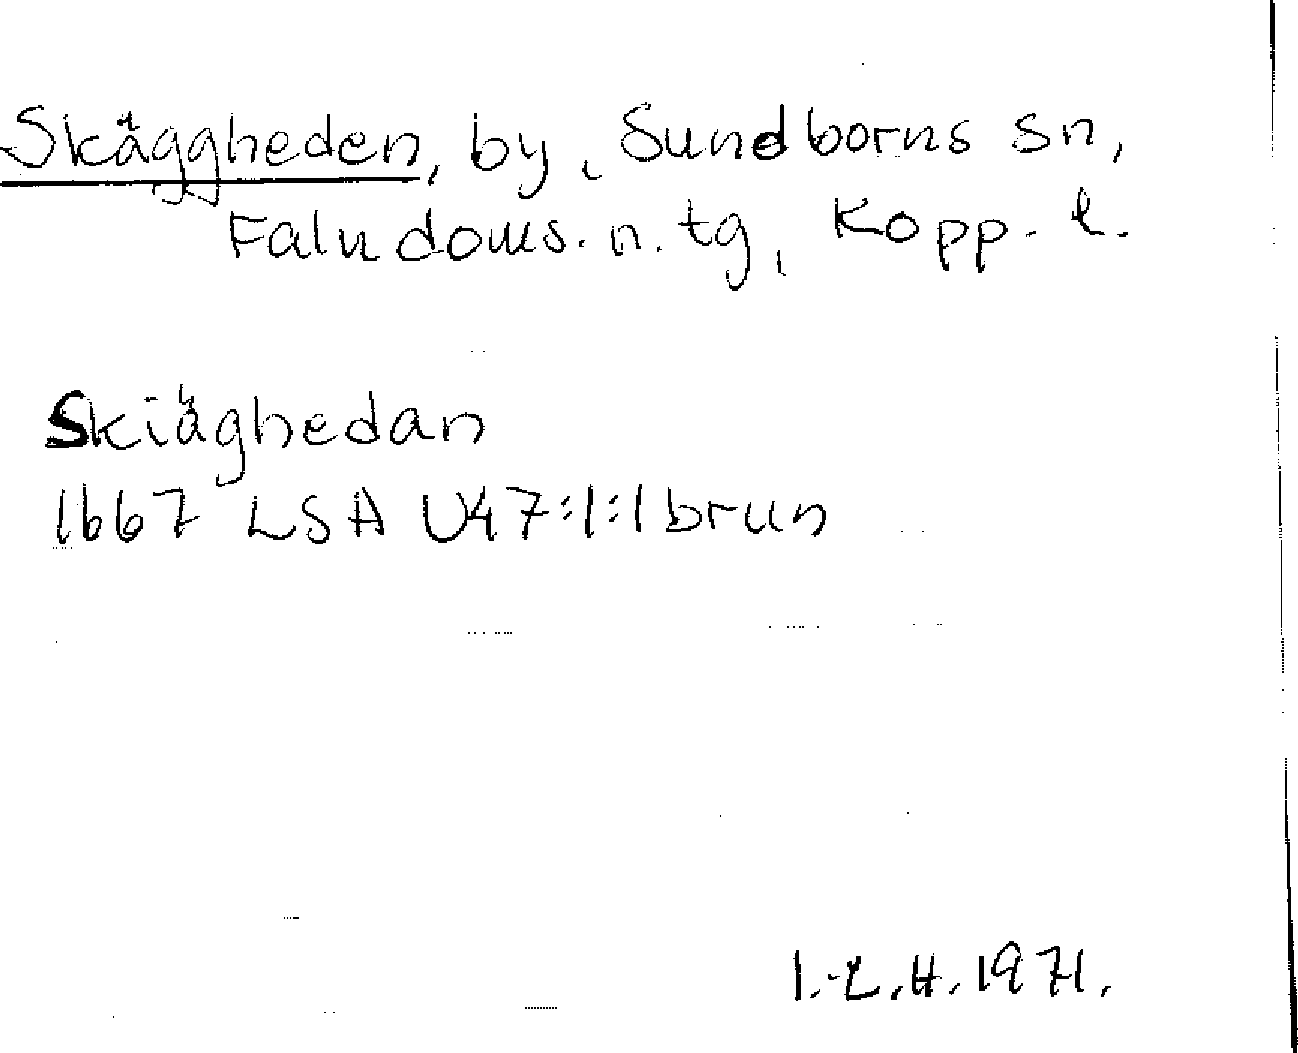 Skäggheden, by, Sundborns sn,
Falu doms. n. tg, Kopp. l.
Skiäghedan
1667 LSA U47:1:1 brun
I.-L.H. 1971.